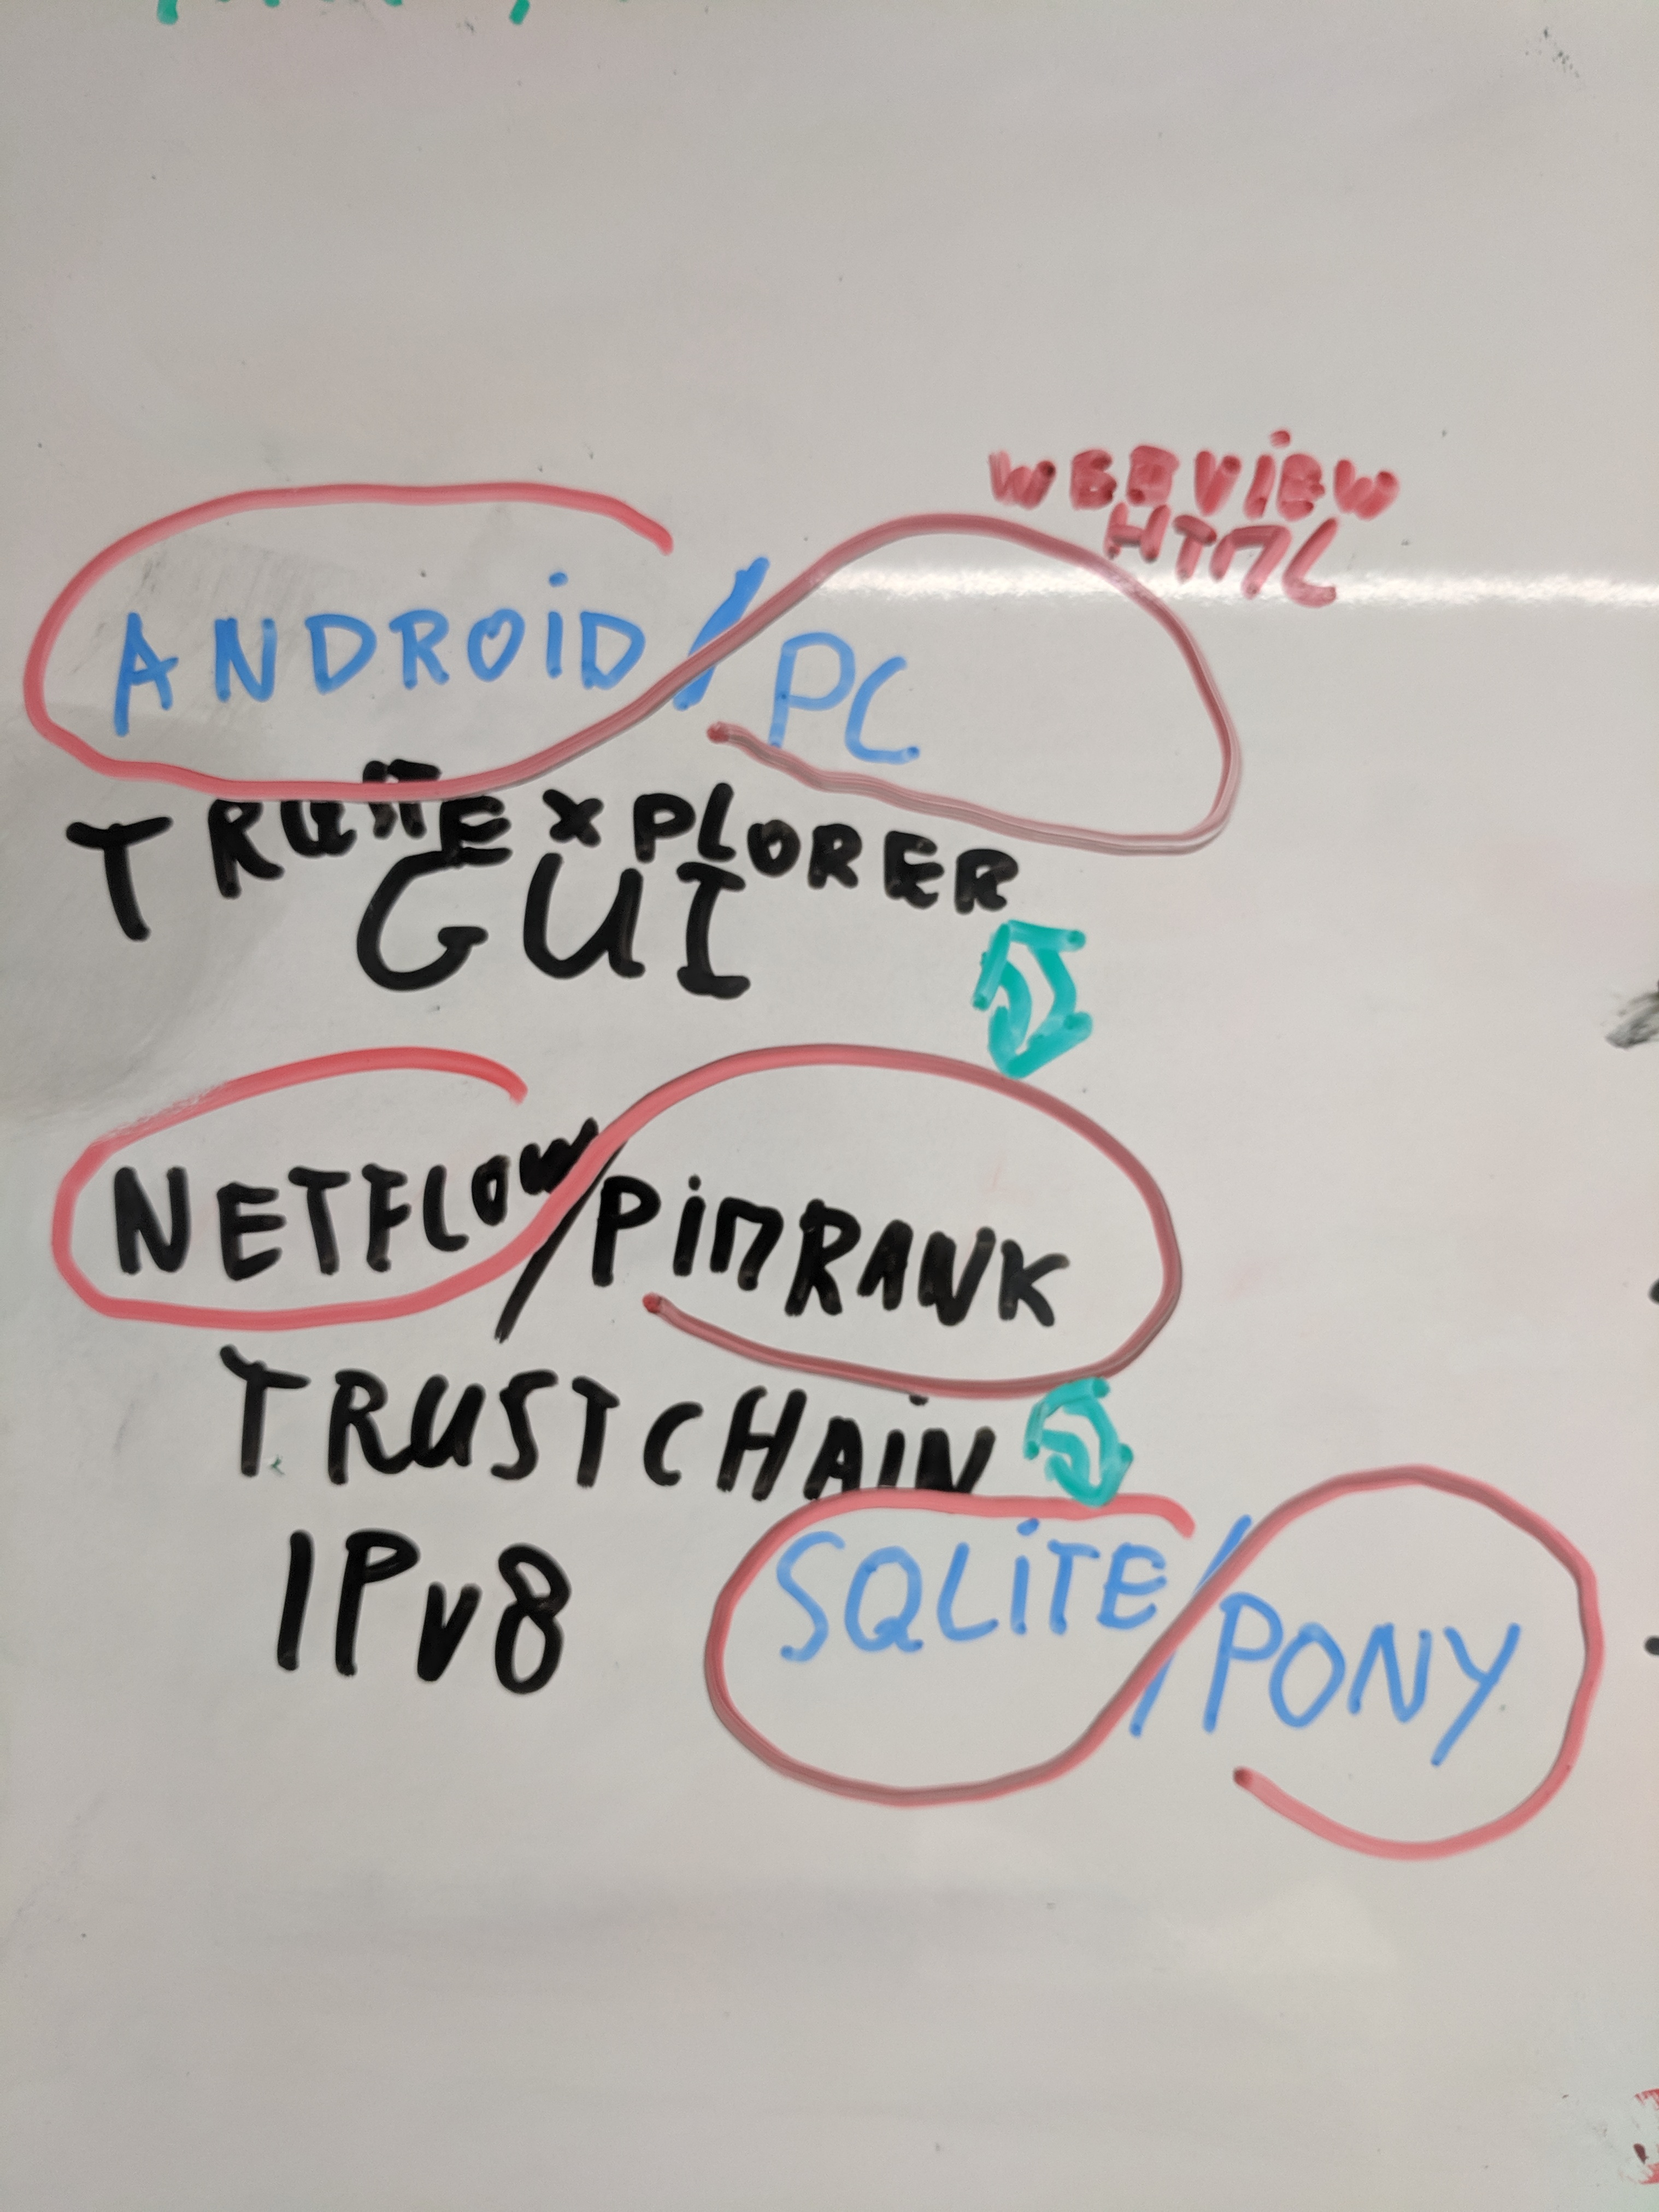 WEBVIEW
HTML
ANDROID / PC
EXPLORER
GUI
NETFLOW / PIMRANK
TRUSTCHAIN
IPv8
SQLITE / PONY